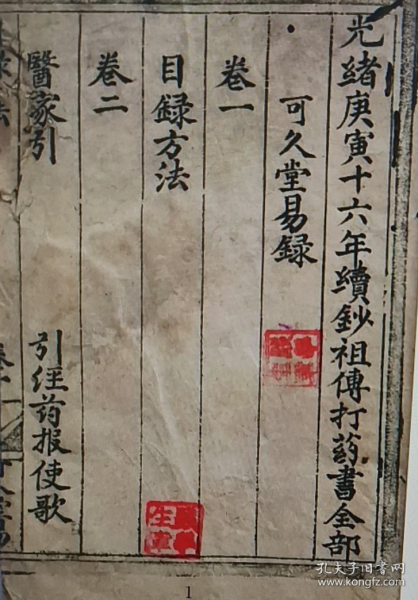 光绪庚寅十六年續鈔祖傳打葯書全部
可久堂易録
卷一
目録方法
卷二
醫家引
引经药报使歌
1
孔夫子旧书网
www.kongfz.com